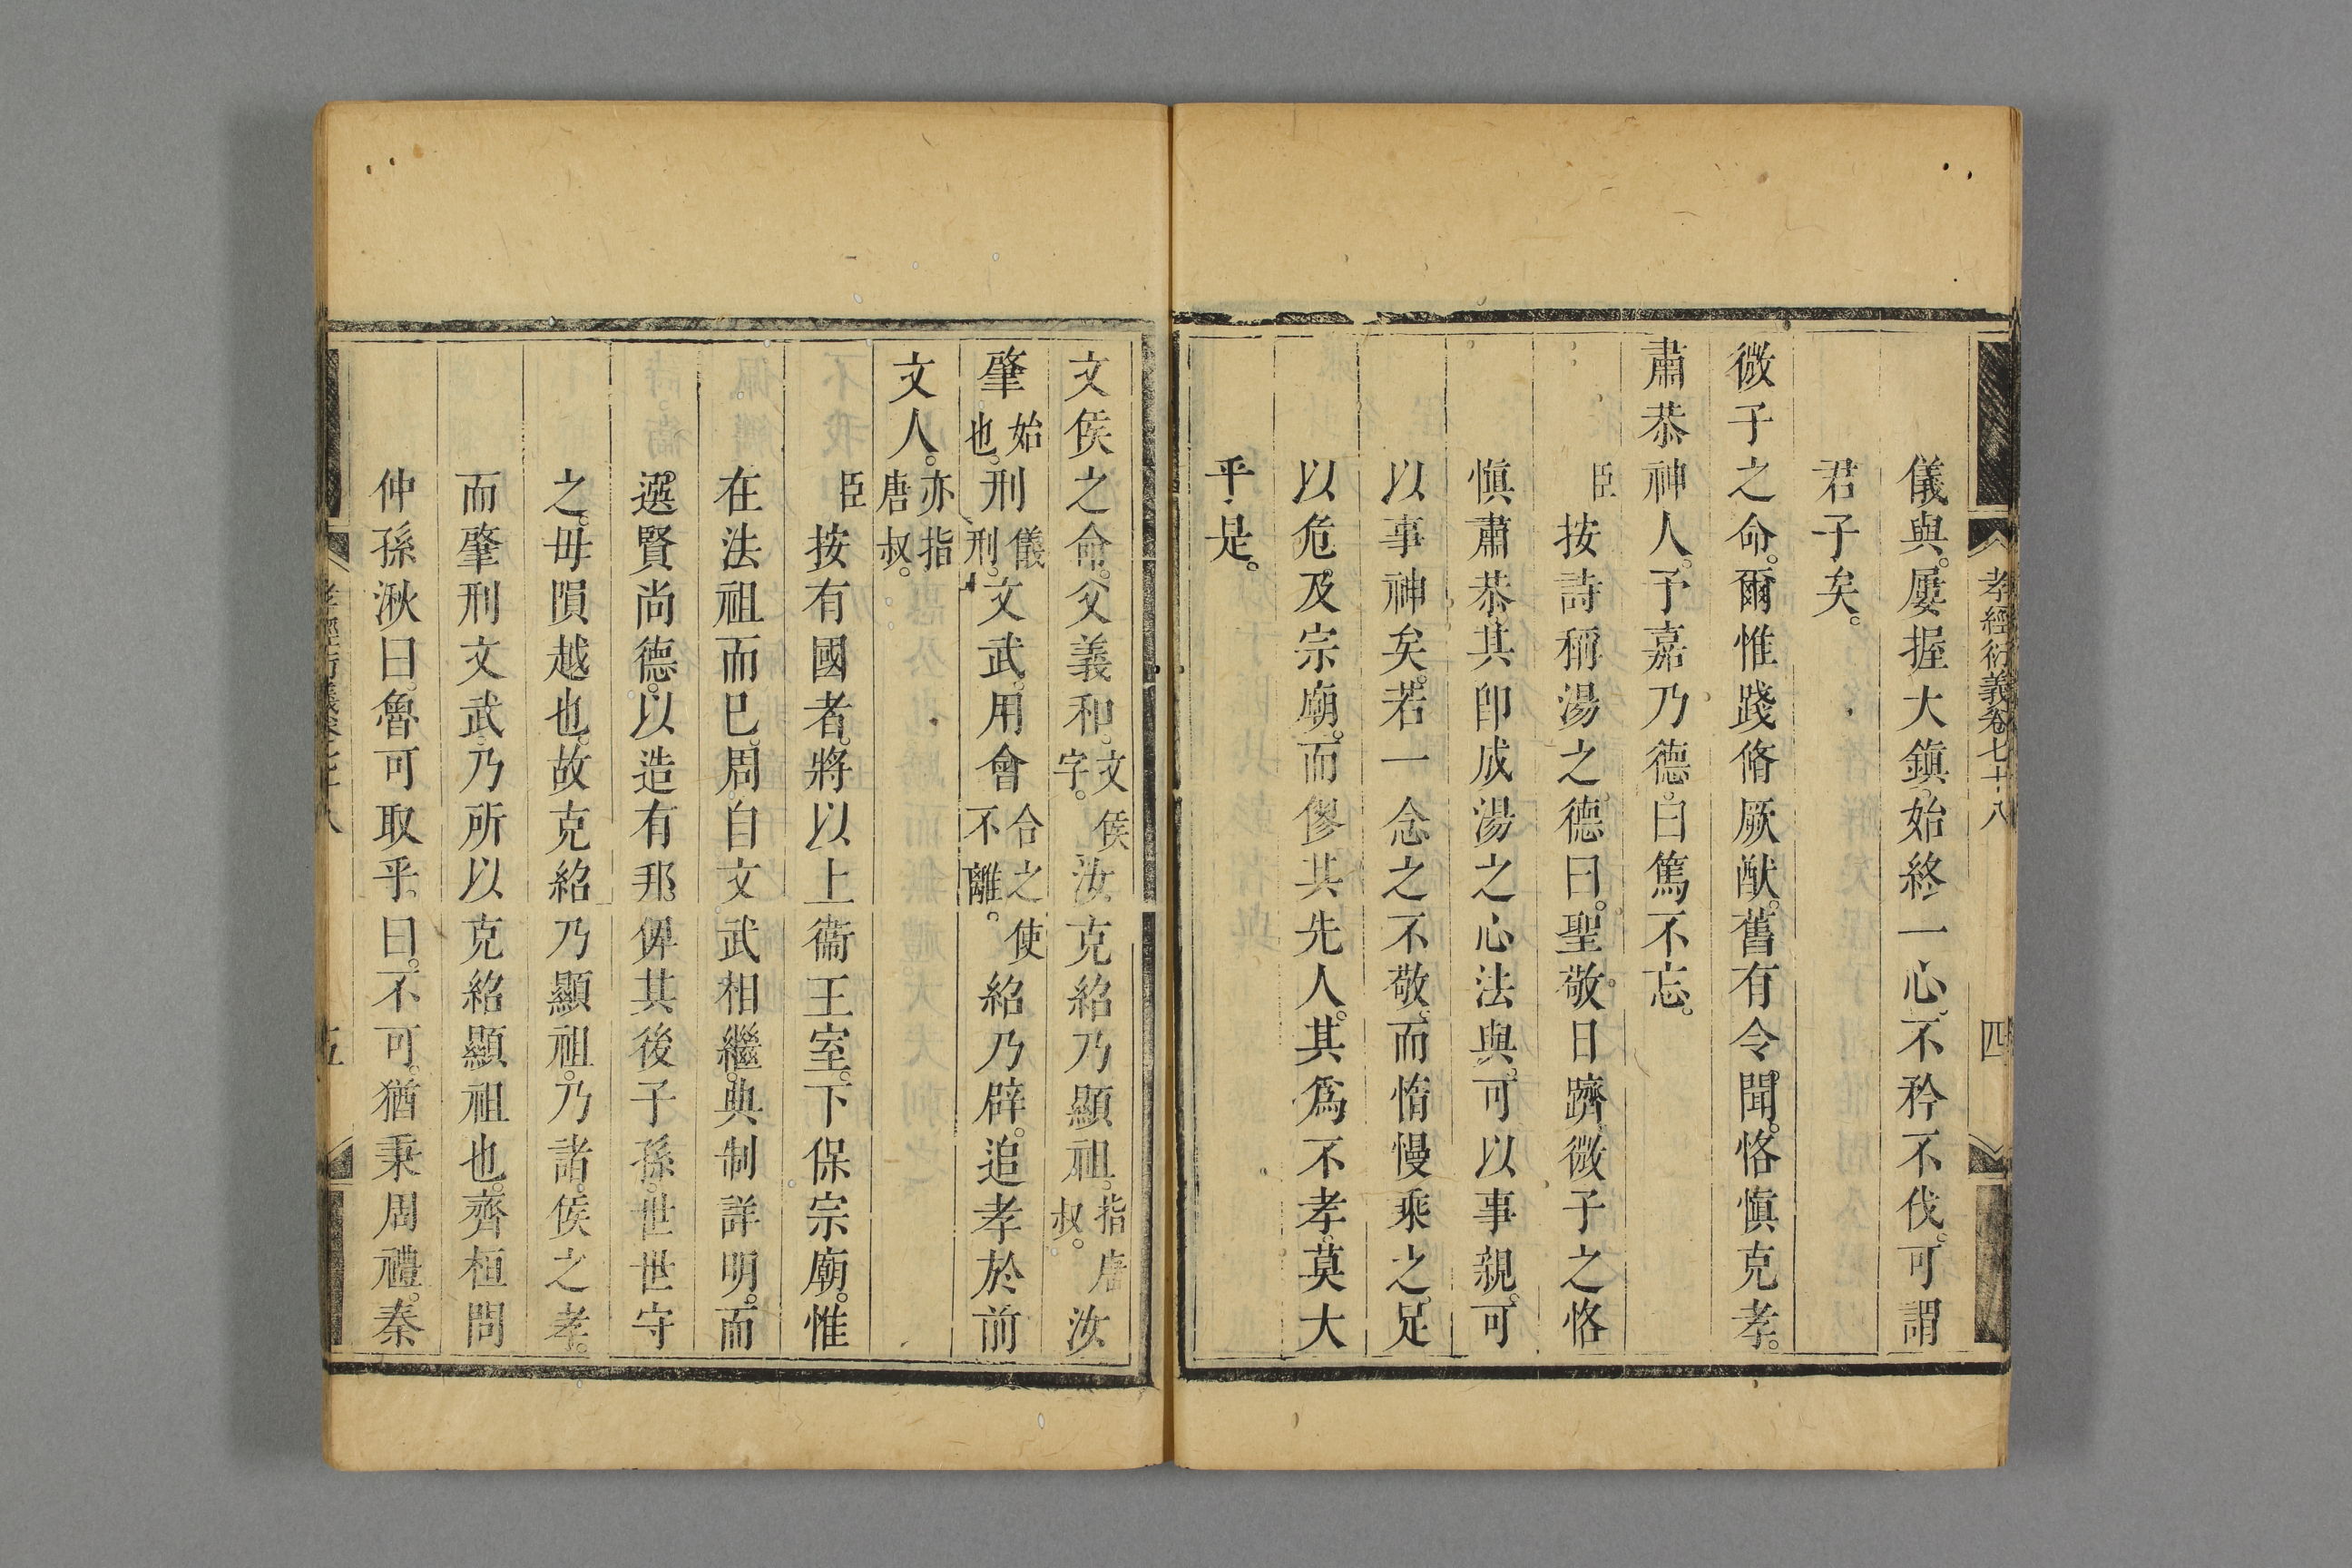 孝經衍義卷七十八 四
儀與。屢握大鎮。始終一心。不矜不伐。可謂
君子矣。
微子之命。爾惟踐脩厥猷。舊有令聞。恪慎克孝。
肅恭神人。予嘉乃德。曰篤不忘。
臣按詩稱湯之德曰。聖敬日躋。微子之恪
慎肅恭。其卽成湯之心法與。可以事親。可
以事神矣。若一念之不敬。而惰慢乘之。足
以危。及宗廟。而僇其先人。其為不孝。莫大
乎是。
文侯之命。父義和。文侯字。汝克紹乃顯祖。指唐叔。汝
肇始也。刑儀刑。文武。用會合之使不離。紹乃辟。追孝於前
文人。亦指唐叔。
臣按有國者。將以上衞王室。下保宗廟。惟
在法祖而已。周自文武相繼。典制詳明。而
選賢尚德。以造有邦。俾其後子孫。世世守
之。毋隕越也。故克紹乃顯祖。乃諸侯之孝。
而肇刑文武。乃所以克紹顯祖也。齊桓問
仲孫湫曰。魯可取乎。曰。不可。猶秉周禮。秦
孝經衍義卷七十八 五